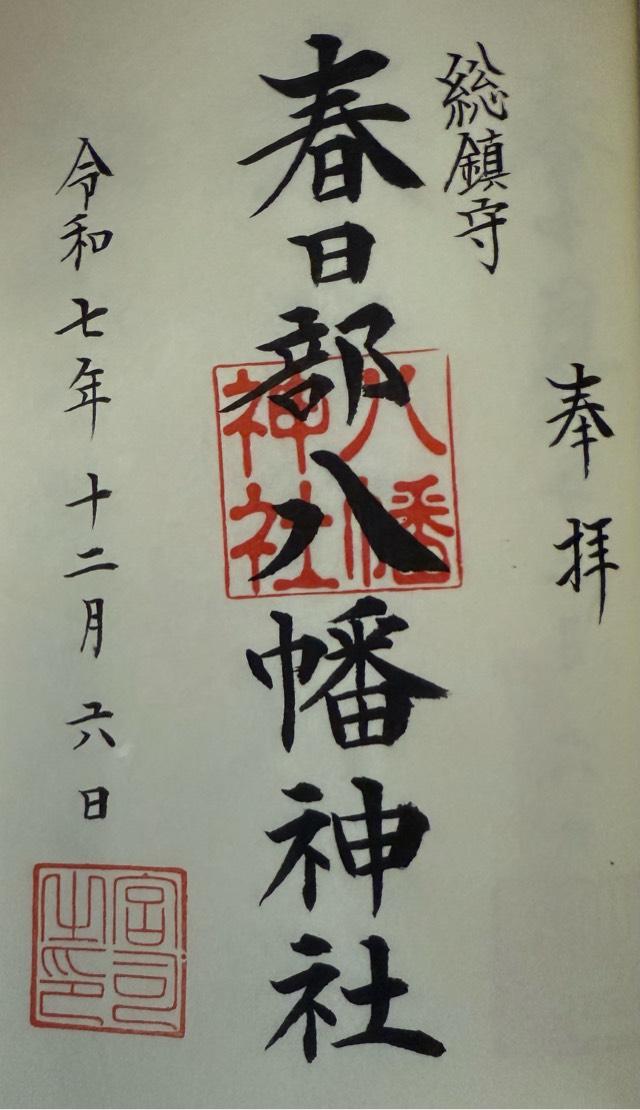 奉拝
総鎮守
春日部八幡神社
八幡神社
令和七年十二月六日
宮司之印